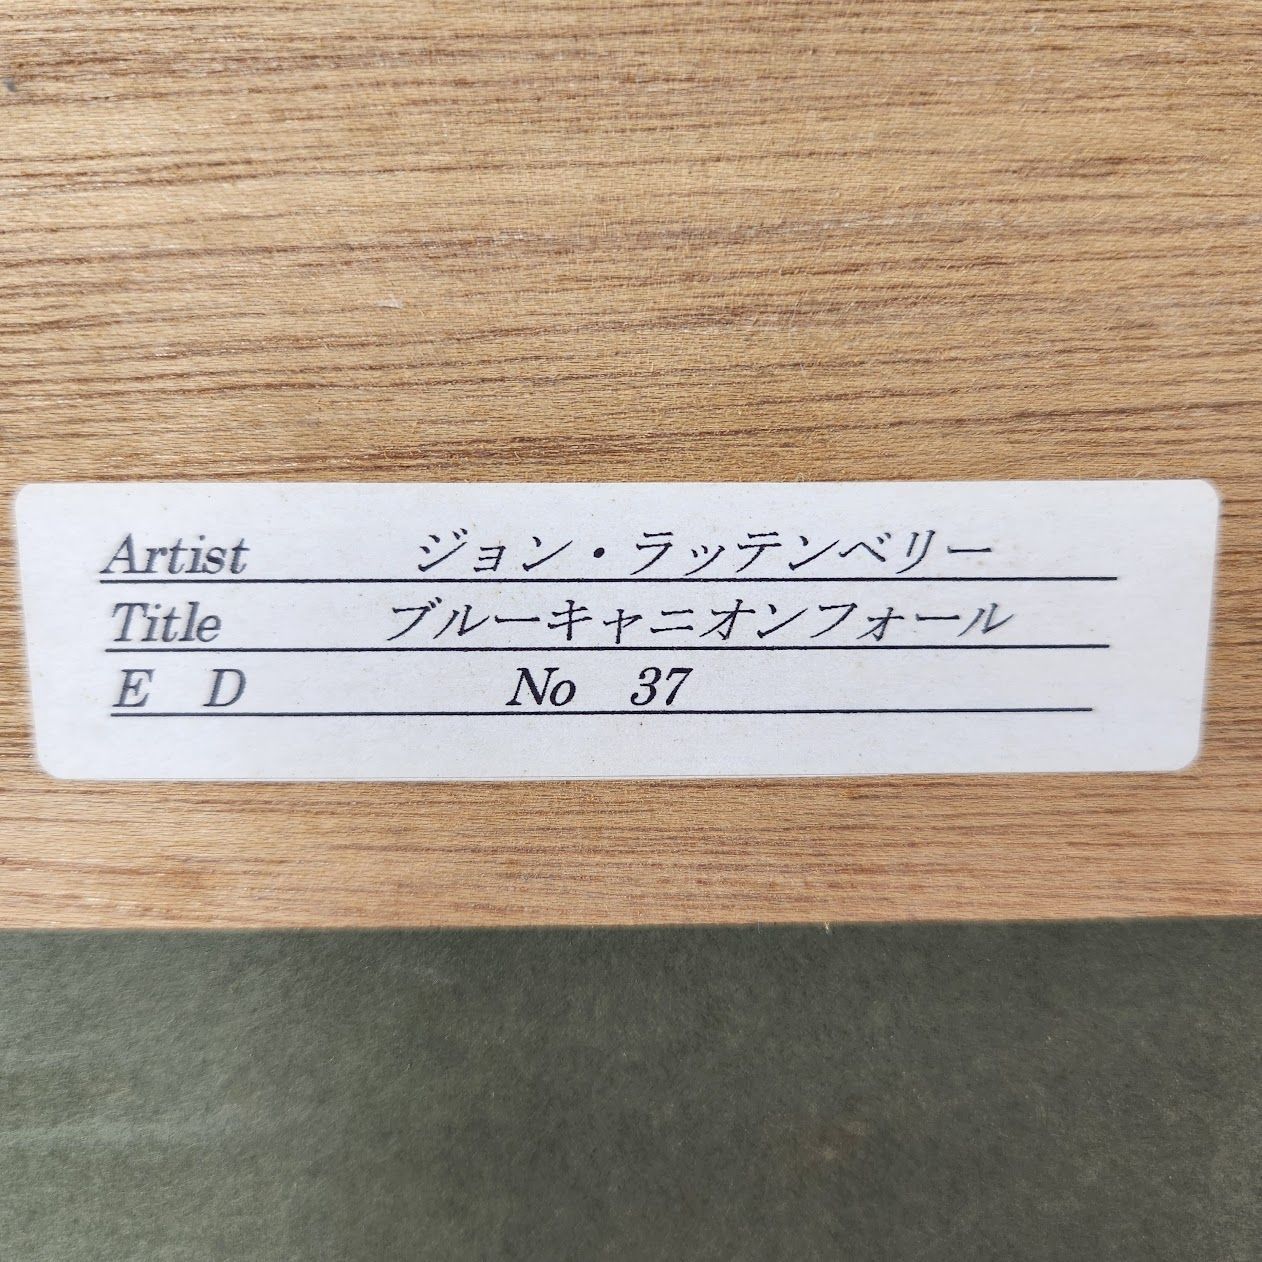 Artist ジョン・ラッテンベリー
Title ブルーキャニオンフォール
E D No 37